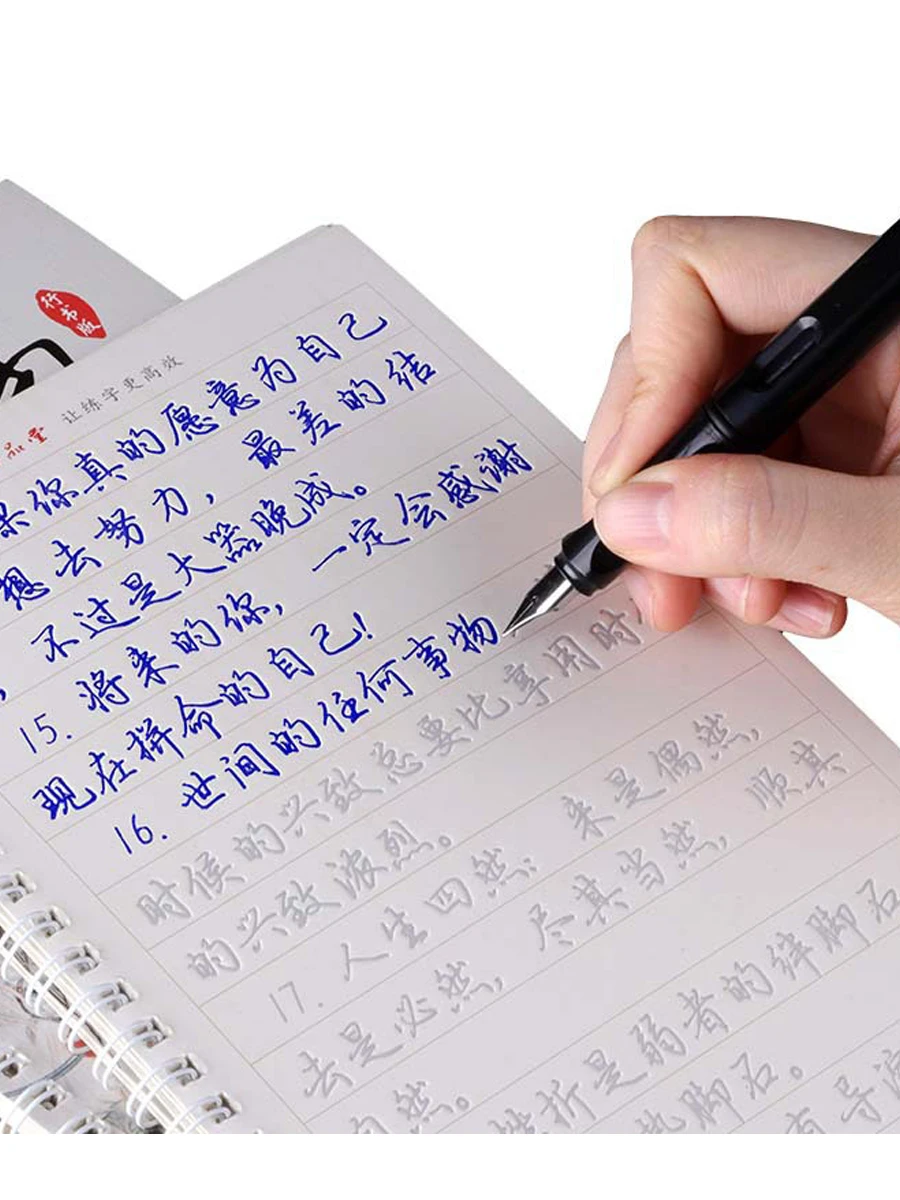 行书版
让练字更高效
果你真的愿意为自己
想去努力，最差的结
，不过是大器晚成。
15. 将来的你，一定会感谢
现在拼命的自己!
16. 世间的任何事物
时候的兴致总要比享用时
的兴致浓烈。
17. 人生四然: 来是偶然，
去是必然，尽其当然，顺其
自然。
挫折是弱者的绊脚石
脚石。
有导演